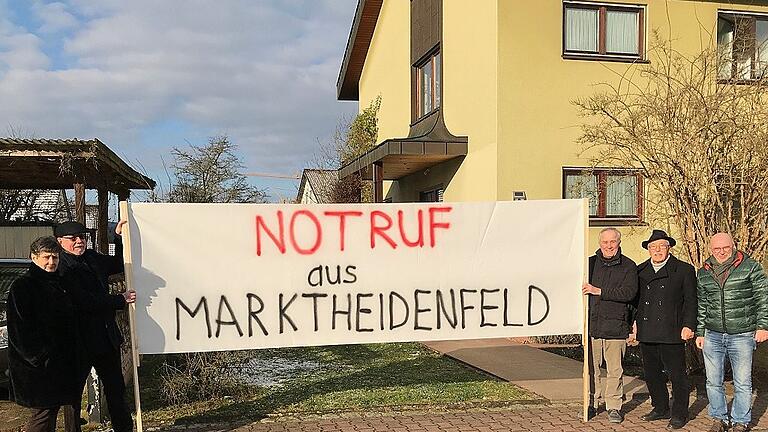 NOTRUF
aus
MARKTHEIDENFELD